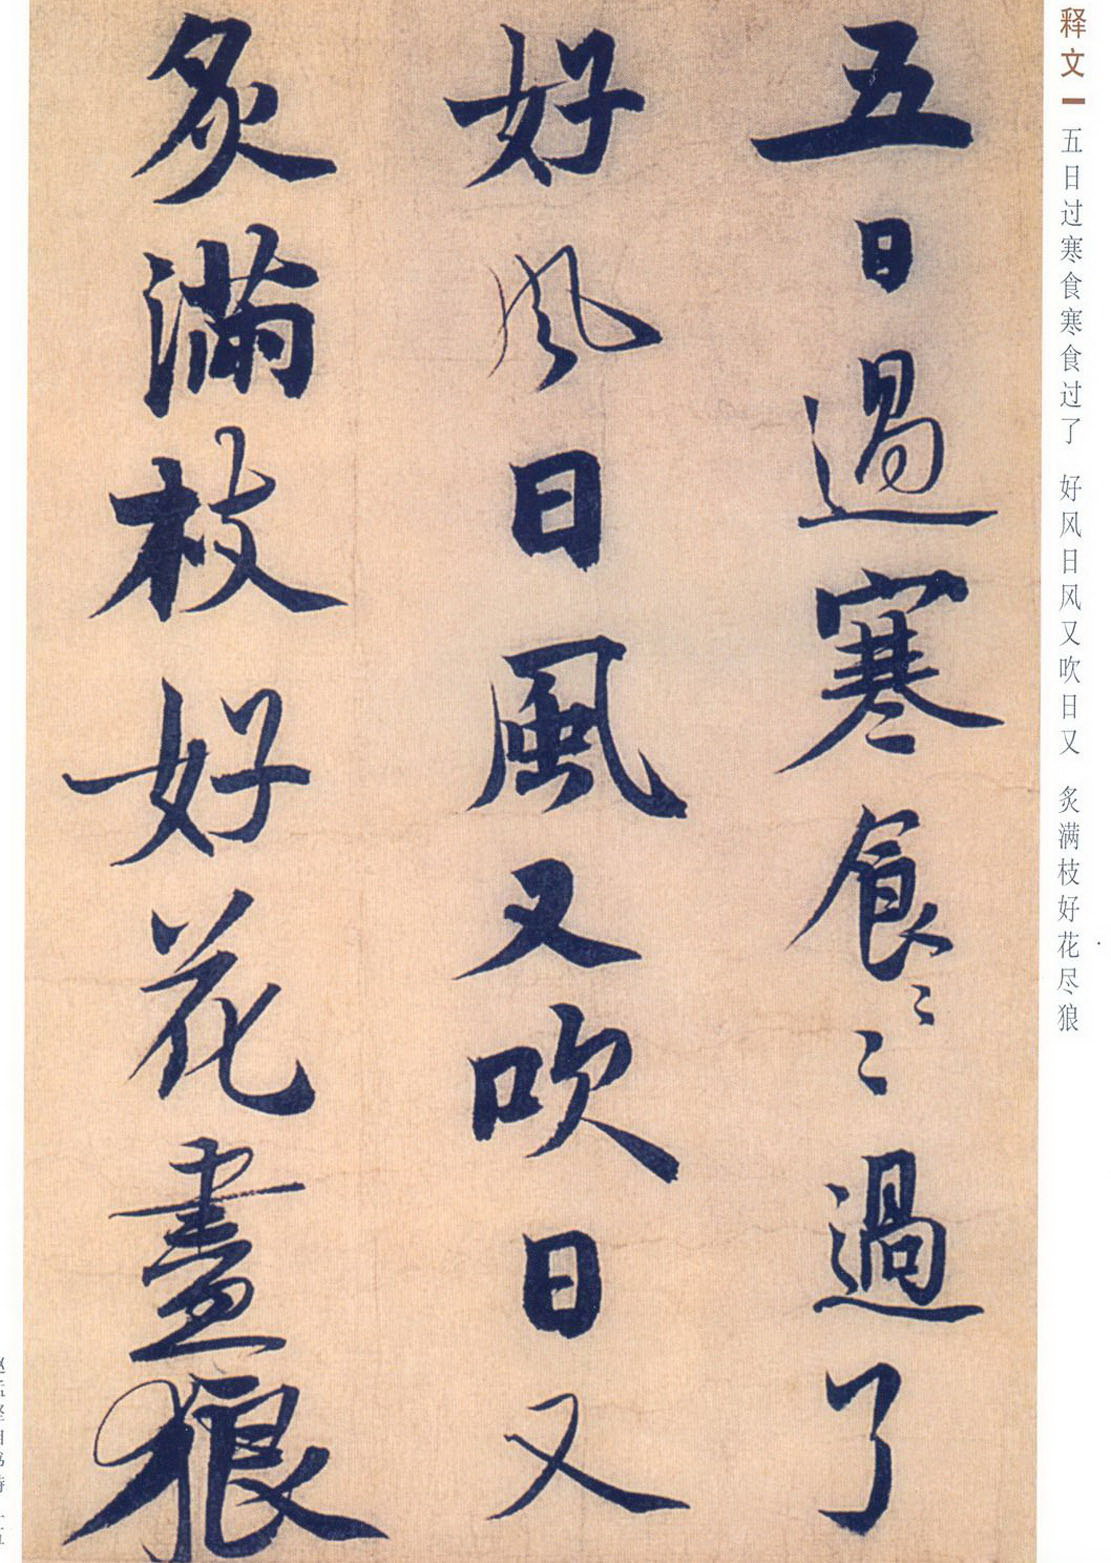 释文
五日过寒食寒食过了 好风日风又吹日又 炙满枝好花尽狼
五日過寒食〻〻過了
好風日風又吹日又
炙滿枝好花盡狼